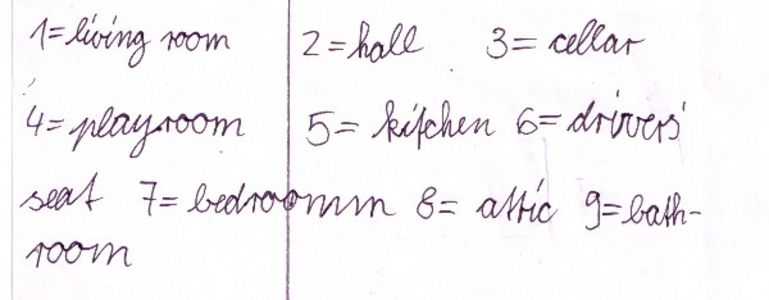 1=living room 2=hall 3= cellar
4=playroom 5= kitchen 6=drivers'
seat 7= bedroomm 8= attic 9=bath-
room